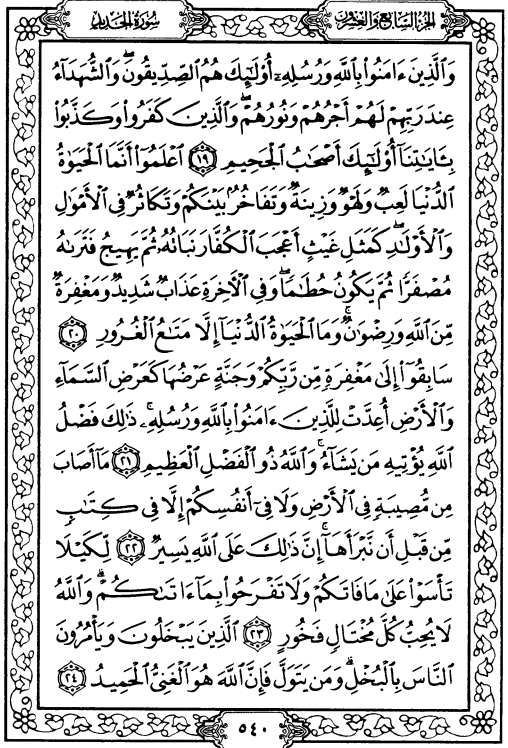 الجزء السابع والعشرون
سورة الحديد
وَٱلَّذِينَ ءَامَنُوا۟ بِٱللَّهِ وَرُسُلِهِۦٓ أُو۟لَـٰٓئِكَ هُمُ ٱلصِّدِّيقُونَ ۖ وَٱلشُّهَدَآءُ
عِندَ رَبِّهِمْ لَهُمْ أَجْرُهُمْ وَنُورُهُمْ ۖ وَٱلَّذِينَ كَفَرُوا۟ وَكَذَّبُوا۟
بِـَٔايَـٰتِنَآ أُو۟لَـٰٓئِكَ أَصْحَـٰبُ ٱلْجَحِيمِ ١٩ ٱعْلَمُوٓا۟ أَنَّمَا ٱلْحَيَوٰةُ
ٱلدُّنْيَا لَعِبٌ وَلَهْوٌ وَزِينَةٌ وَتَفَاخُرٌۢ بَيْنَكُمْ وَتَكَاثُرٌ فِى ٱلْأَمْوَٰلِ
وَٱلْأَوْلَـٰدِ ۖ كَمَثَلِ غَيْثٍ أَعْجَبَ ٱلْكُفَّارَ نَبَاتُهُۥ ثُمَّ يَهِيجُ فَتَرَىٰهُ
مُصْفَرًّا ثُمَّ يَكُونُ حُطَـٰمًا ۖ وَفِى ٱلْـَٔاخِرَةِ عَذَابٌ شَدِيدٌ وَمَغْفِرَةٌ
مِّنَ ٱللَّهِ وَرِضْوَٰنٌ ۚ وَمَا ٱلْحَيَوٰةُ ٱلدُّنْيَآ إِلَّا مَتَـٰعُ ٱلْغُرُورِ ٢٠
سَابِقُوٓا۟ إِلَىٰ مَغْفِرَةٍ مِّن رَّبِّكُمْ وَجَنَّةٍ عَرْضُهَا كَعَرْضِ ٱلسَّمَآءِ
وَٱلْأَرْضِ أُعِدَّتْ لِلَّذِينَ ءَامَنُوا۟ بِٱللَّهِ وَرُسُلِهِۦ ۚ ذَٰلِكَ فَضْلُ
ٱللَّهِ يُؤْتِيهِ مَن يَشَآءُ ۚ وَٱللَّهُ ذُو ٱلْفَضْلِ ٱلْعَظِيمِ ٢١ مَآ أَصَابَ
مِن مُّصِيبَةٍ فِى ٱلْأَرْضِ وَلَا فِىٓ أَنفُسِكُمْ إِلَّا فِى كِتَـٰبٍ
مِّن قَبْلِ أَن نَّبْرَأَهَآ ۚ إِنَّ ذَٰلِكَ عَلَى ٱللَّهِ يَسِيرٌ ٢٢ لِّكَيْلَا
تَأْسَوْا۟ عَلَىٰ مَا فَاتَكُمْ وَلَا تَفْرَحُوا۟ بِمَآ ءَاتَىٰكُمْ ۗ وَٱللَّهُ
لَا يُحِبُّ كُلَّ مُخْتَالٍ فَخُورٍ ٢٣ ٱلَّذِينَ يَبْخَلُونَ وَيَأْمُرُونَ
ٱلنَّاسَ بِٱلْبُخْلِ ۗ وَمَن يَتَوَلَّ فَإِنَّ ٱللَّهَ هُوَ ٱلْغَنِىُّ ٱلْحَمِيدُ ٢٤
٥٤٠